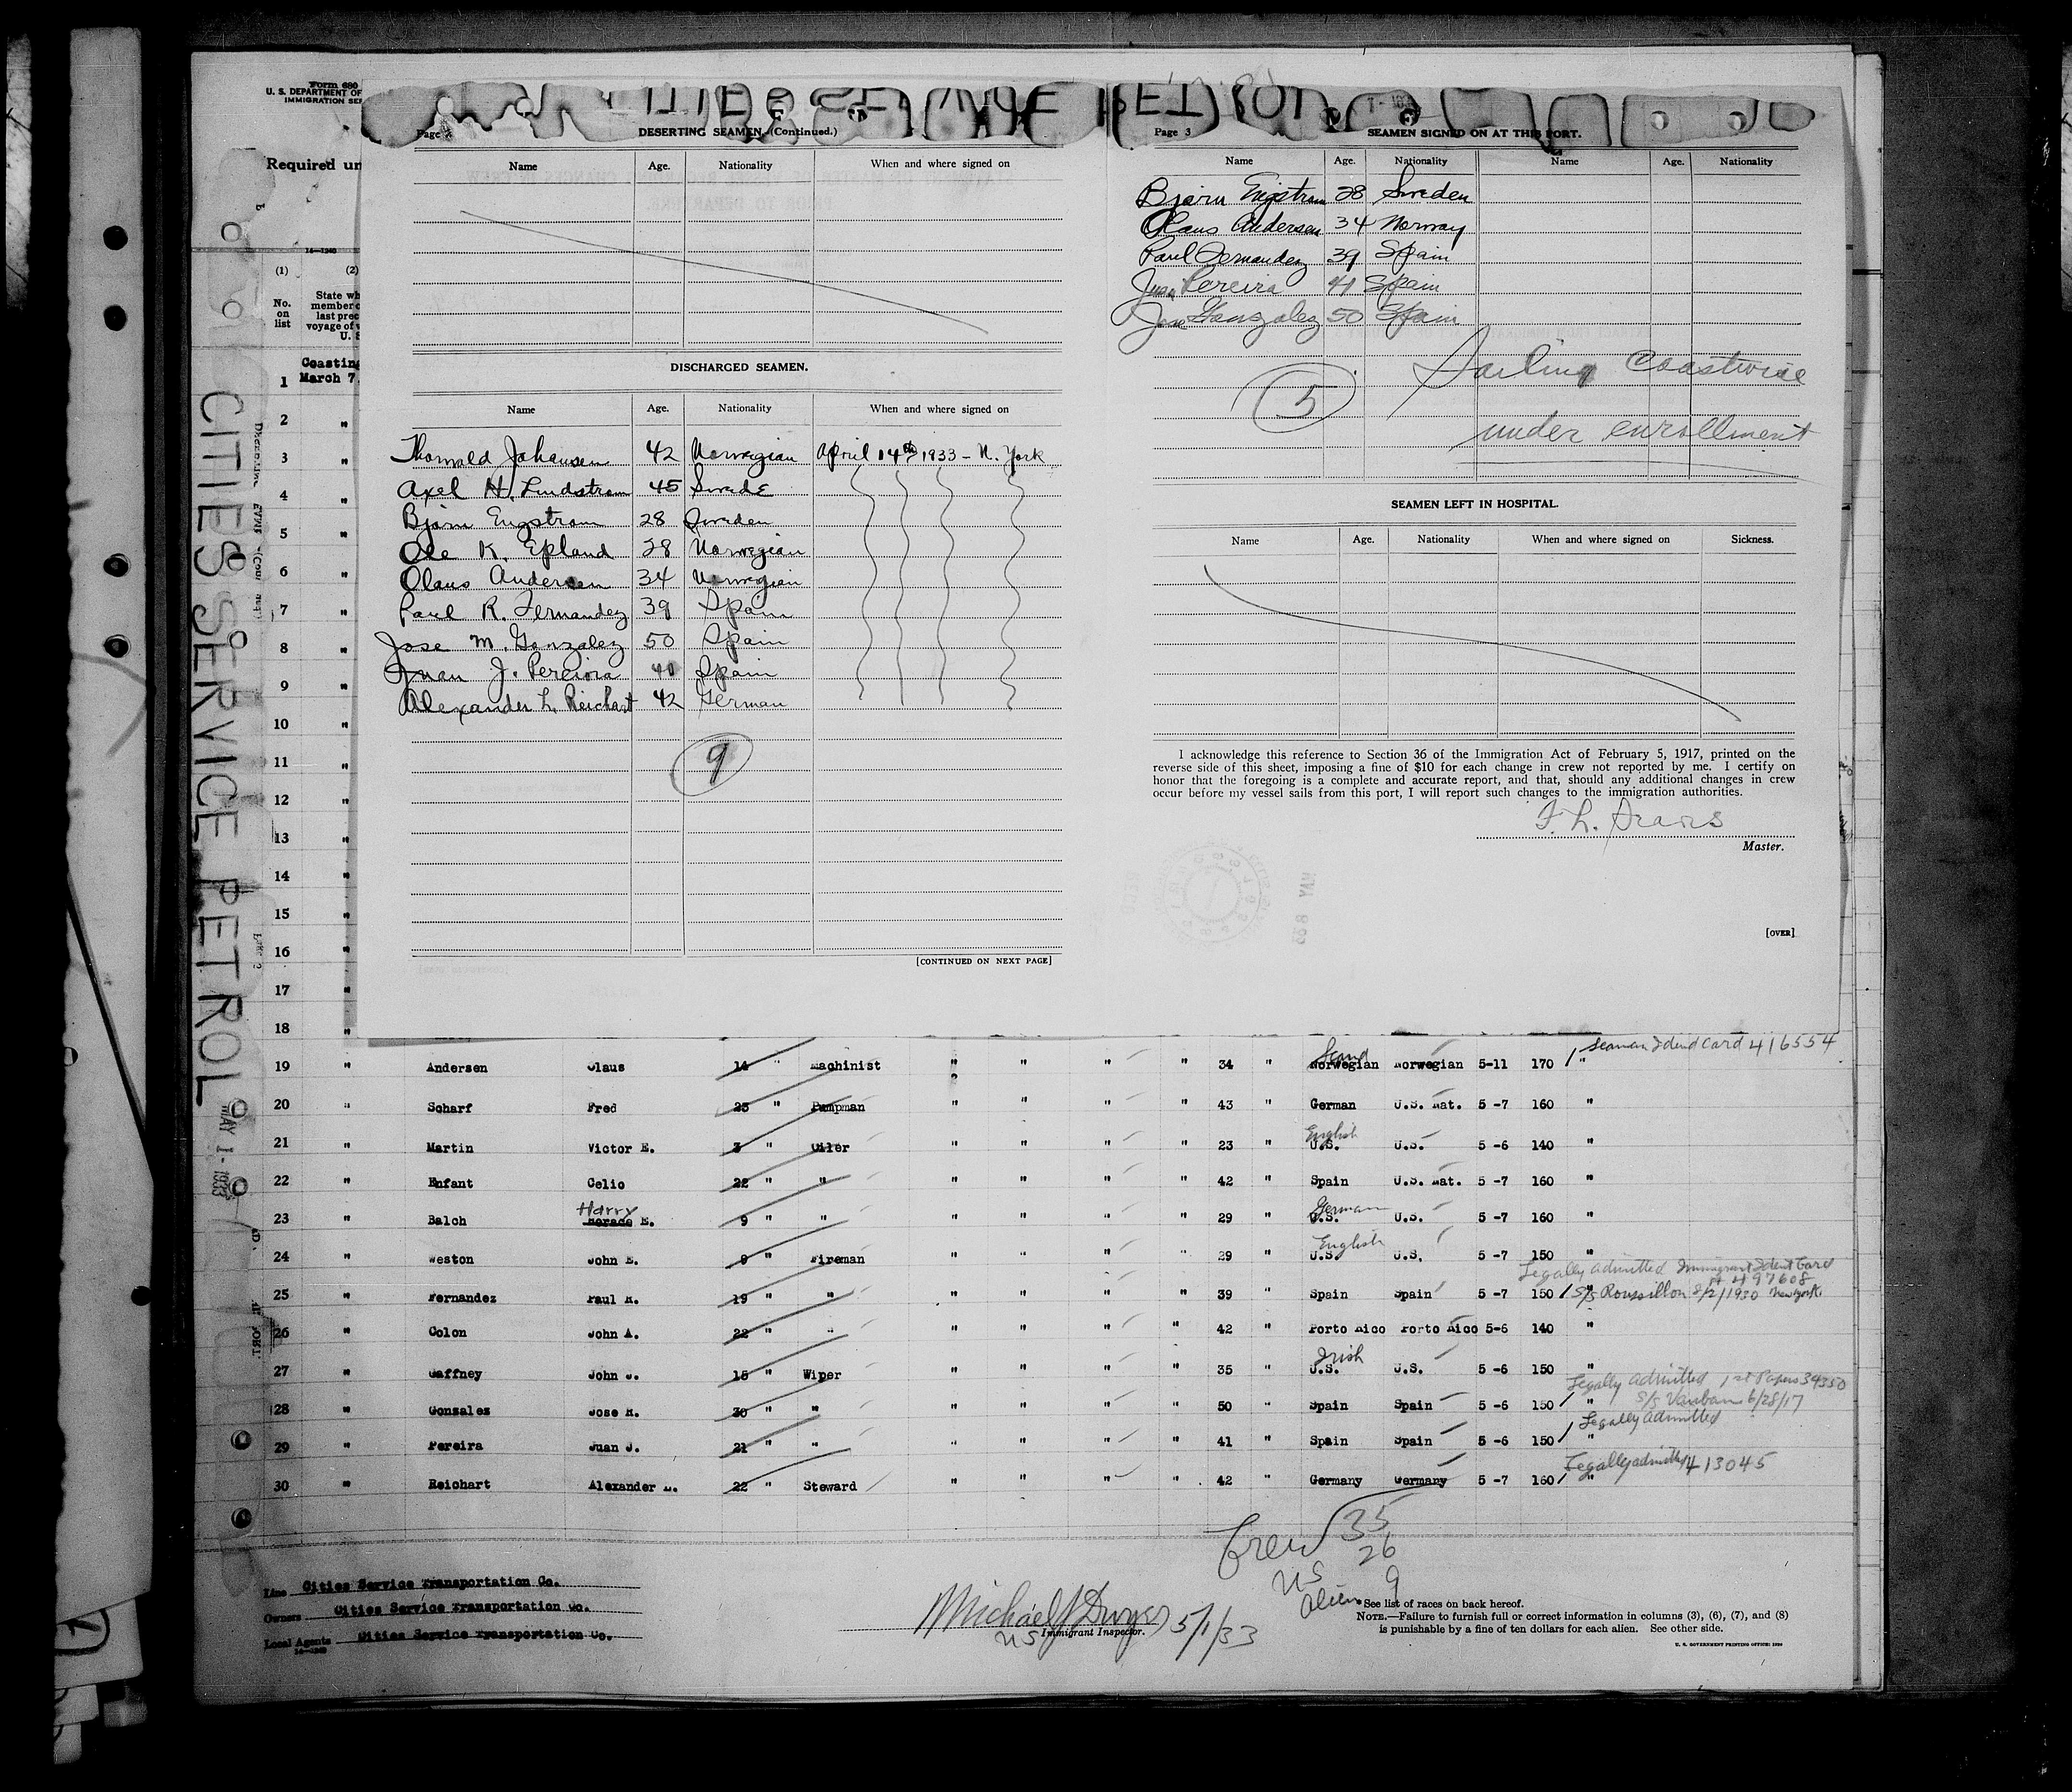 Form 680
U. S. DEPARTMENT OF
IMMIGRATION SER
Required un
14—1240
(1)
(2)
No.
on
list
State wh
member o
last prec
voyage of v
U. S
Coasting
March 7
1
2 "
3 "
4 "
5 "
6 "
7 "
8 "
9 "
10 "
11 "
12 "
13 "
14 "
15 "
16 "
17 "
18 "
CITIES SERVICE PETROL
MAY 1 - 1933
Page
DESERTING SEAMEN. (Continued.)
Name Age. Nationality When and where signed on
DISCHARGED SEAMEN.
Name Age. Nationality When and where signed on
Thorvald Johansen 42 Norwegian April 14th 1933 - N. York
Axel H. Lindstrom 45 Swede
Bjorn Engstrom 28 Sweden
Ole K. Epland 28 Norwegian
Olaus Andersen 34 Norwegian
Paul R. Fernandez 39 Spain
Jose M. Gonzalez 50 Spain
Juan J. Pereira 40 Spain
Alexander L. Reichart 42 German
9
[CONTINUED ON NEXT PAGE]
Page 3
SEAMEN SIGNED ON AT THIS PORT.
Name Age. Nationality Name Age. Nationality
Bjorn Engstrom 28 Sweden
Olaus Andersen 34 Norway
Paul Fernandez 39 Spain
Juan Pereira 41 Spain
Jose Gonzalez 50 Spain
5
Sailing Coastwise
under enrollment
SEAMEN LEFT IN HOSPITAL.
Name Age. Nationality When and where signed on Sickness.
I acknowledge this reference to Section 36 of the Immigration Act of February 5, 1917, printed on the
reverse side of this sheet, imposing a fine of $10 for each change in crew not reported by me. I certify on
honor that the foregoing is a complete and accurate report, and that, should any additional changes in crew
occur before my vessel sails from this port, I will report such changes to the immigration authorities.
Master.
[OVER]
Seaman Ident Card 416554
Scand
19 " Andersen Olaus 14 " Machinist " " " " 34 " Norwegian Norwegian 5-11 170 "
20 " Scharf Fred 23 " Pumpman " " " " 43 " German U.S. Nat. 5 -7 160 "
English
21 " Martin Victor E. 3 " Oiler " " " " 23 " U.S. U.S. 5 -6 140 "
22 " Enfant Celio 22 " " " " " " 42 " Spain U.S. Nat. 5 -7 160 "
Harry German
23 " Balch Horace E. 9 " " " " " " 29 " U.S. U.S. 5 -7 160 "
English
24 " Weston John E. 8 " Fireman " " " " 29 " U.S. U.S. 5 -7 150 "
Legally admitted Immigrant Ident Card
# 497608
25 " Fernandez Paul R. 19 " " " " " " 39 " Spain Spain 5 -7 150 " S/S Roussillon 8/2/1930 New York
26 " Colon John A. 22 " " " " " " 42 " Porto Rico Porto Rico 5-6 140 "
Irish
27 " Gaffney John J. 15 " Wiper " " " " 35 " U.S. U.S. 5 -6 150 "
Legally admitted 1st Papers 39350
28 " Gonzalez Jose M. 30 " " " " " " 50 " Spain Spain 5 -6 150 " S/S 6/28/17
Legally admitted
29 " Pereira Juan J. 21 " " " " " " 41 " Spain Spain 5 -6 150 "
Legally admitted 413045
30 " Reichart Alexander L. 22 " Steward " " " " 42 " Germany Germany 5 -7 160 "
Crew 35
US 26
Alien 9
Line Cities Service Transportation Co.
Owners Cities Service Transportation Co.
Local Agents Cities Service Transportation Co.
14—1240
Michael J Dwyer 5/1/33
US Immigrant Inspector.
See list of races on back hereof.
NOTE.—Failure to furnish full or correct information in columns (3), (6), (7), and (8)
is punishable by a fine of ten dollars for each alien. See other side.
U. S. GOVERNMENT PRINTING OFFICE: 1930